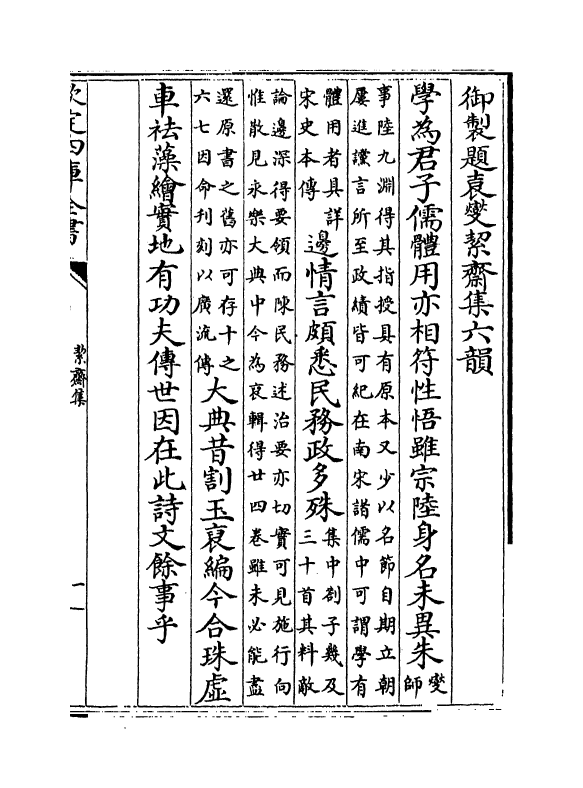 御製題袁燮絜齋集六韻
學為君子儒體用亦相符性悟雖宗陸身名未異朱燮師
事陸九淵得其指授具有原本又少以名節自期立朝
屢進讜言所至政績皆可紀在南宋諸儒中可謂學有
體用者具詳宋史本傳邊情言頗悉民務政多殊集中劄子幾及三十首其料敵
論邊深得要領而陳民務述治要亦切實可見施行向
惟散見永樂大典中今為裒輯得廿四卷雖未必能盡
還原書之舊亦可存十之六七因命刊刻以廣流傳大典昔割玉裒編今合珠虛
車祛藻繪實地有功夫傳世因在此詩文餘事乎
欽定四庫全書
絜齋集
一